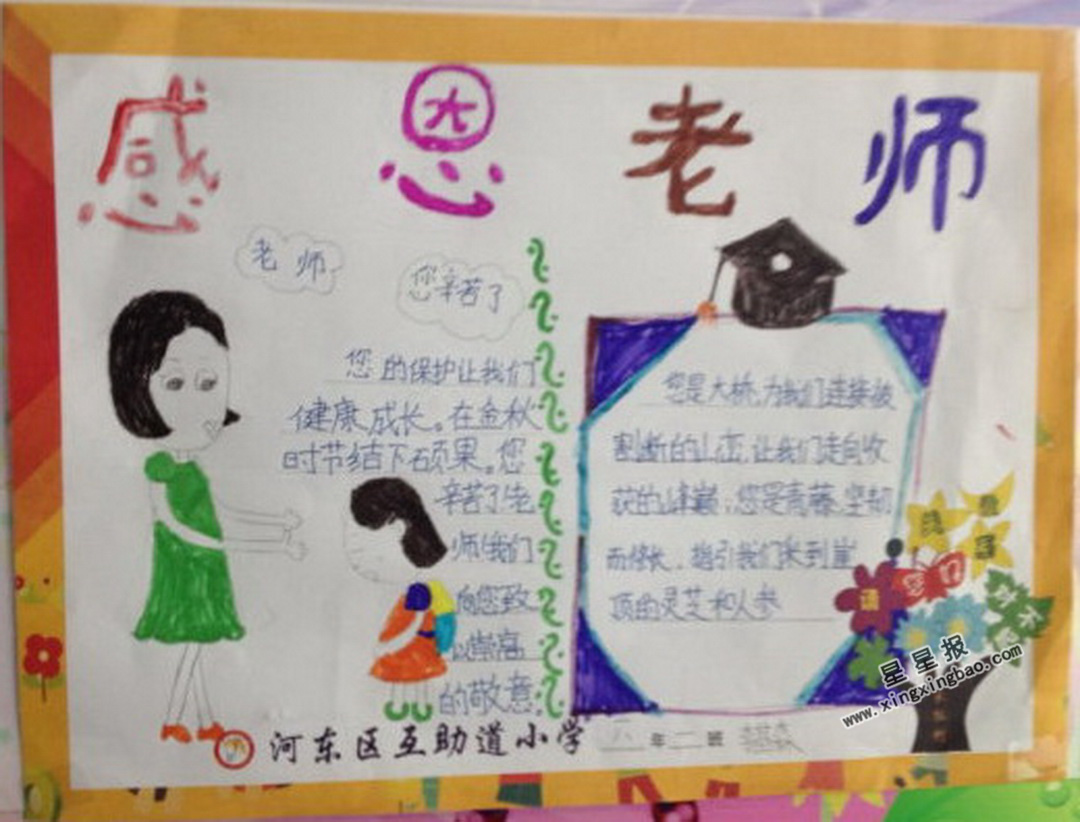 感恩老师
老师
您辛苦了
您的保护让我们
健康成长。在金秋
时节结下硕果。您
辛苦了!老
师!我们
向您致
以崇高
的敬意。
您是大桥,为我们连接被
割断的山峦,让我们走向收
获的峰巅;您是青藤,坚韧
而修长,指引我们采到崖
顶的灵芝和人参
请
星星报
www.xingxingbao.com
河东区互助道小学 六年二班